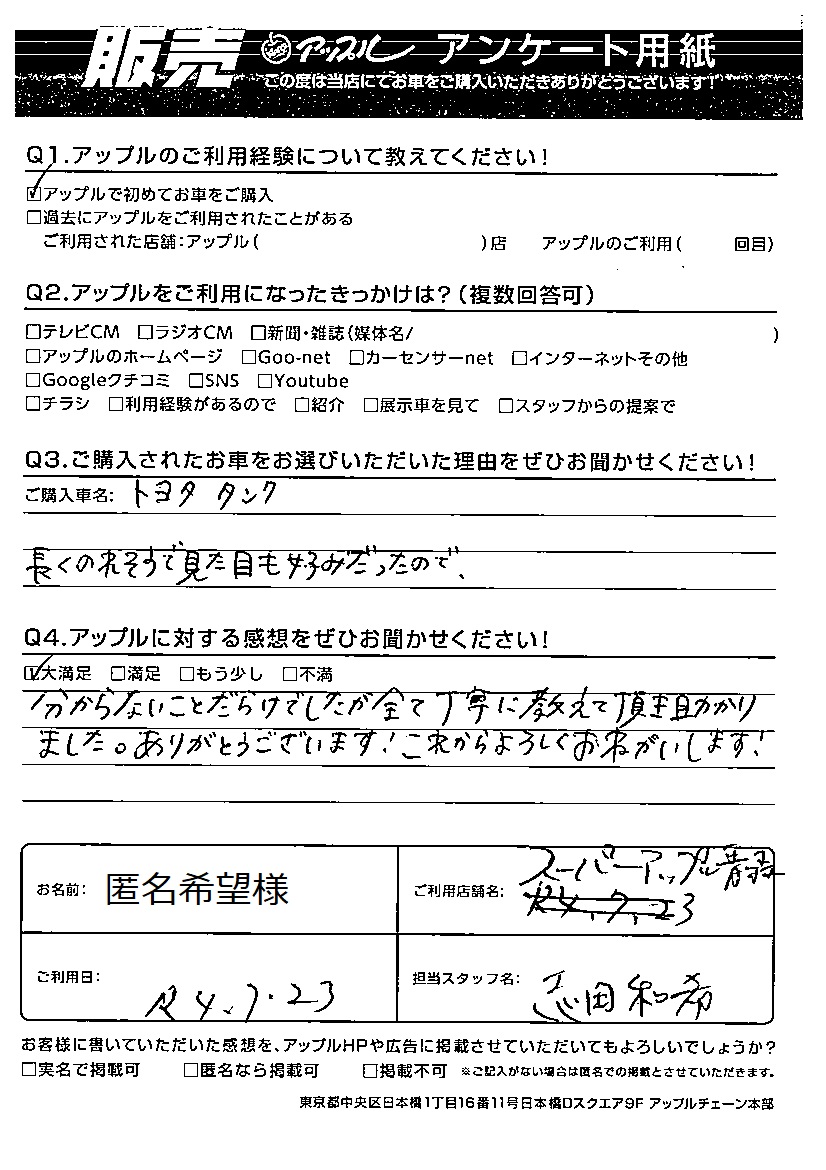 販売 アップル アンケート用紙
この度は当店にてお車をご購入いただきありがとうございます!
Q1.アップルのご利用経験について教えてください!
☑アップルで初めてお車をご購入
□過去にアップルをご利用されたことがある
ご利用された店舗:アップル( )店 アップルのご利用( 回目)
Q2.アップルをご利用になったきっかけは?(複数回答可)
□テレビCM □ラジオCM □新聞・雑誌(媒体名/ )
□アップルのホームページ □Goo-net □カーセンサーnet □インターネットその他
□Googleクチコミ □SNS □Youtube
□チラシ □利用経験があるので □紹介 □展示車を見て □スタッフからの提案で
Q3.ご購入されたお車をお選びいただいた理由をぜひお聞かせください!
ご購入車名: トヨタ タンク
長くのれそうで見た目も好みだったので、
Q4.アップルに対する感想をぜひお聞かせください!
☑大満足 □満足 □もう少し □不満
分からないことだらけでしたが全て丁寧に教えて頂き助かり
ました。ありがとうございます!これからよろしくおねがいします!
お名前: 匿名希望様
ご利用店舗名: スーパーアップル
R4.7.23
ご利用日: R4.7.23
担当スタッフ名: 志田和希
お客様に書いていただいた感想を、アップルHPや広告に掲載させていただいてもよろしいでしょうか?
□実名で掲載可 □匿名なら掲載可 □掲載不可 ※ご記入がない場合は匿名での掲載とさせていただきます。
東京都中央区日本橋1丁目16番11号日本橋Dスクエア9F アップルチェーン本部